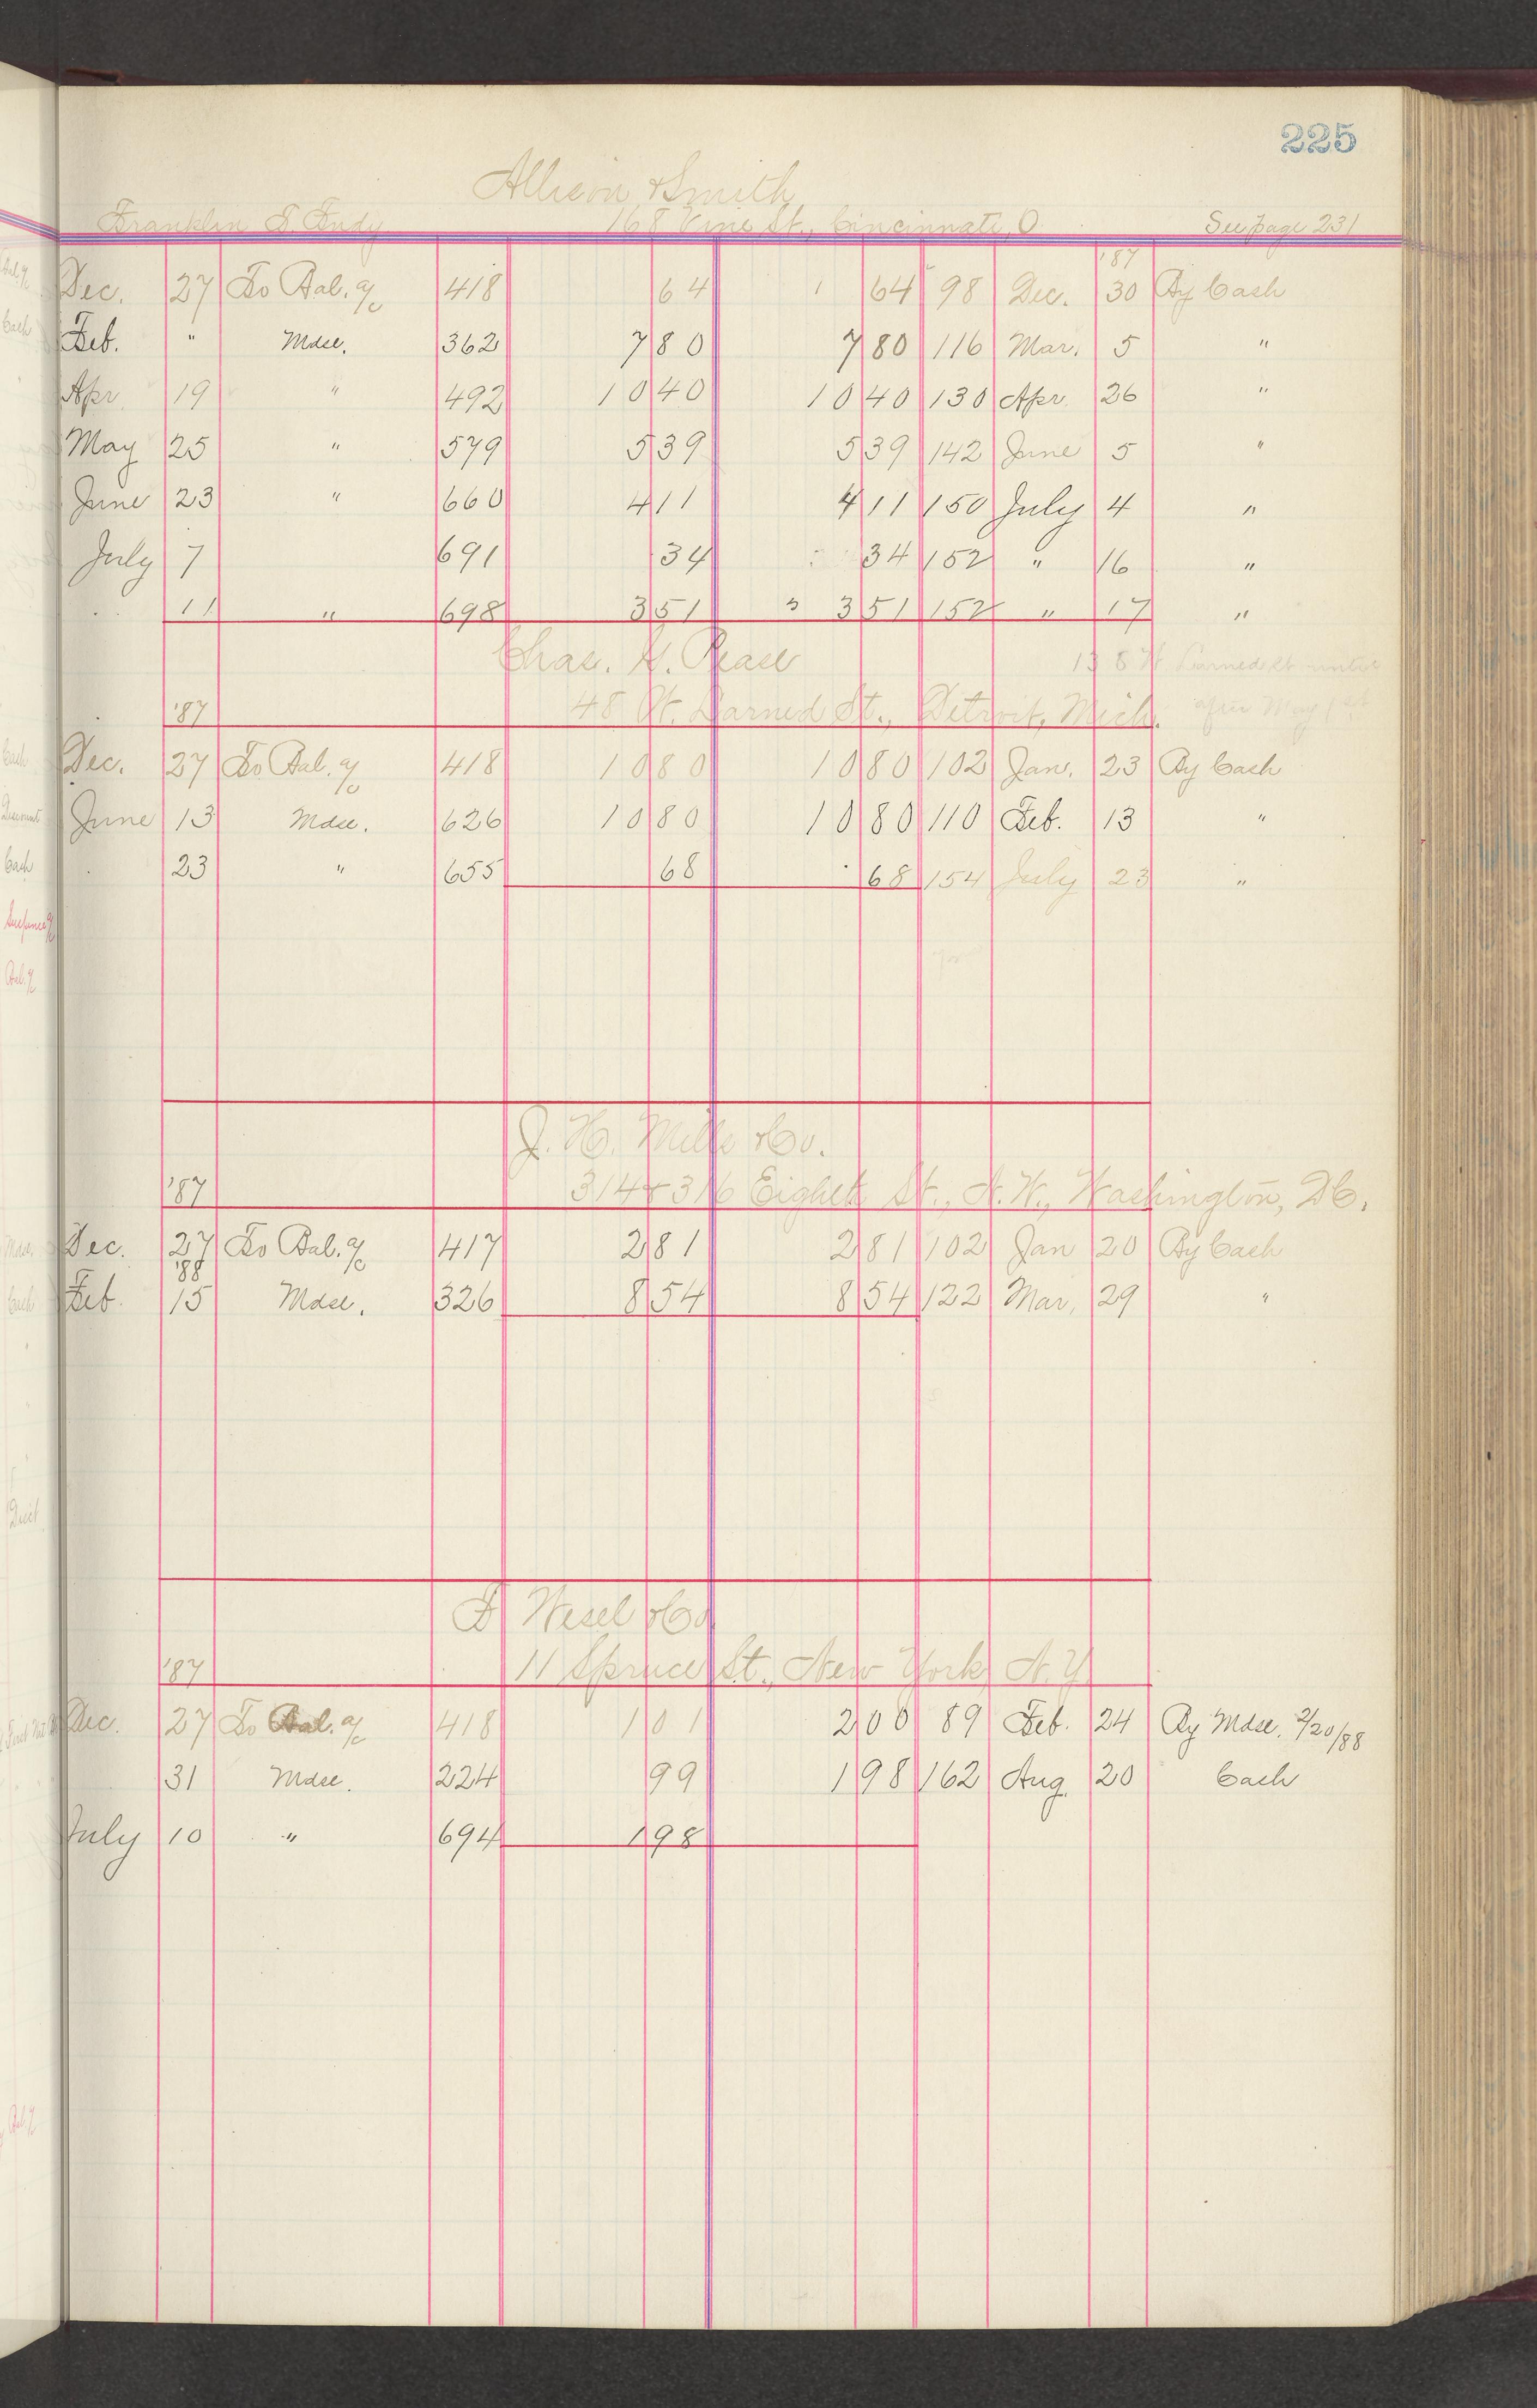 225
Allison & Smith
Franklin S. Tudy 168 Vine St., Cincinnati, O See page 231
'87
Dec. 27 To Bal. a/c 418 64 64 98 Dec. 30 By Cash
Feb. " Mdse. 362 7 80 7 80 116 Mar. 5 "
Apr. 19 " 492 10 40 10 40 130 Apr. 26 "
May 25 " 579 5 39 5 39 142 June 5 "
June 23 " 660 4 11 4 11 150 July 4 "
July 7 691 34 34 152 " 16 "
11 " 698 3 51 3 51 152 " 17 "
Chas. H. Pease 138 W Larned St until
'87 48 W. Larned St., Detroit, Mich. after May 1st
Dec. 27 To Bal. a/c 418 10 80 10 80 102 Jan. 23 By Cash
June 13 Mdse. 626 10 80 10 80 110 Feb. 13 "
23 " 655 68 68 154 July 23 "
J. H. Mills & Co.
'87 314 & 316 Eighth St., N.W., Washington, D.C.
Dec. 27 To Bal. a/c 417 2 81 2 81 102 Jan 20 By Cash
'88
Feb. 15 Mdse. 326 8 54 8 54 122 Mar. 29 "
F Wesel & Co.
'87 11 Spruce St., New York, N.Y.
Dec. 27 To Bal. a/c 418 1 01 2 00 89 Feb. 24 By Mdse. 2/20/88
31 Mdse. 224 99 1 98 162 Aug. 20 Cash
July 10 " 694 1 98